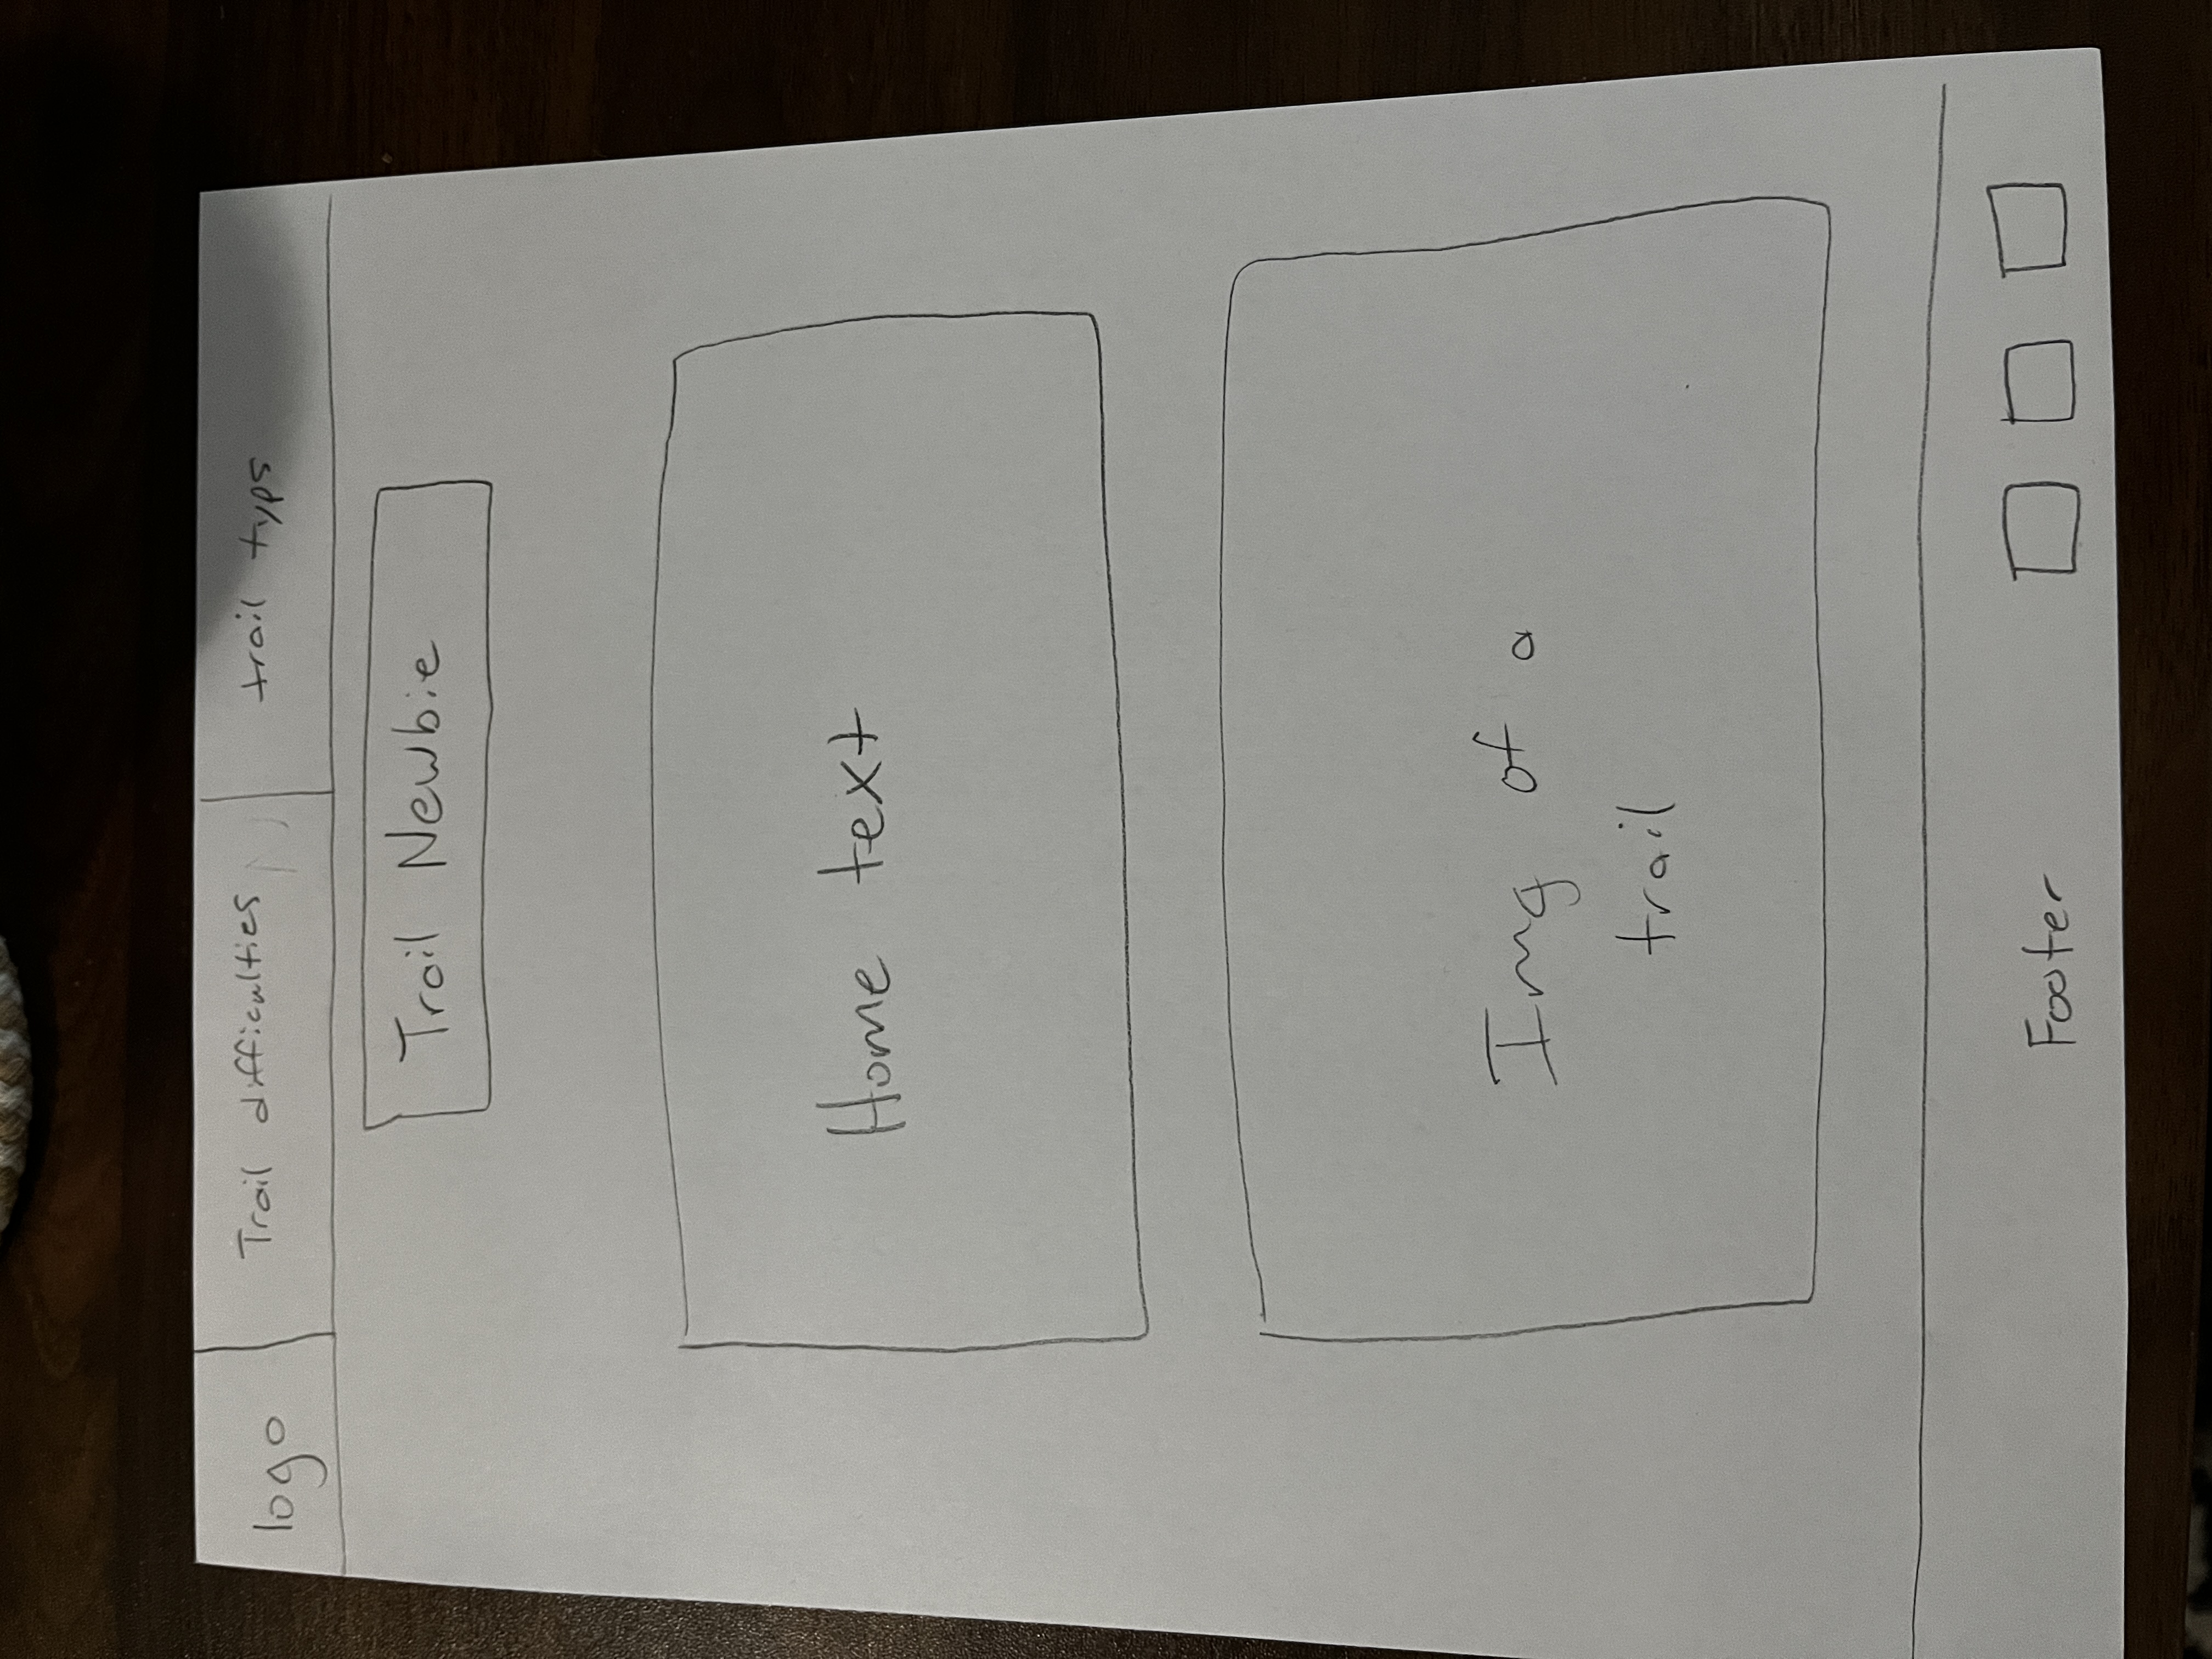 logo
Trail difficulties
trail typs
Trail Newbie
Home text
Img of a
trail
Footer